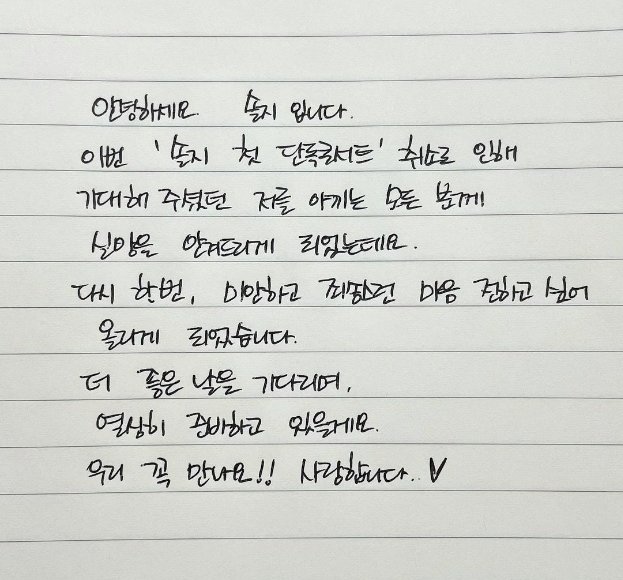 안녕하세요. 솔지 입니다.
이번 '솔지 첫 단독콘서트' 취소로 인해
기대해 주셨던 저를 아끼는 모든 분께
실망을 안겨드리게 되었는데요.
다시 한번, 미안하고 죄송한 마음 전하고 싶어
올리게 되었습니다.
더 좋은 날을 기다리며,
열심히 준비하고 있을게요.
우리 꼭 만나요!! 사랑합니다.♥